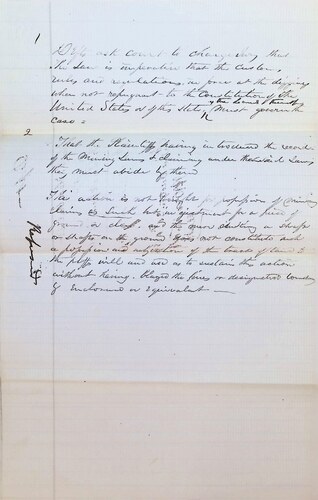 1
Defts ask court to charge jury that
The Law is imperative that the Customs,
rules and regulations, in force at the diggings
when not repugnant to the Constitution of the
United States or of this State, & the laws thereof
Must govern the
case.
2
That the Plaintiffs having introduced the records
of the Mining Laws & claiming under them said Laws
they must abide by them
This action is not brought for possession of mining
claims as Such but in ejectment for a piece of
ground or and the mere sinking a shaft
or shafts on the ground does not constitute such
a possession and of the
the plffs will and use as to sustain this action
without having blazed the lines or designated boundary
by Enclosure or Equivalent
Refused